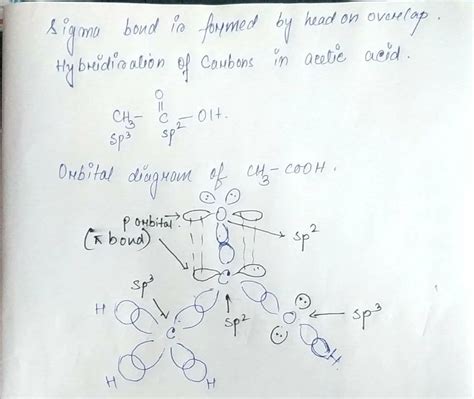 Sigma bond is formed by head on overlap.
Hybridization of Carbons in acetic acid.
O
||
CH3 - C - OH.
sp3 sp2
Orbital diagram of CH3-COOH.
P orbital.
O
(π bond)
sp2
C
sp3
sp2
O
sp3
H
C
H
H
H